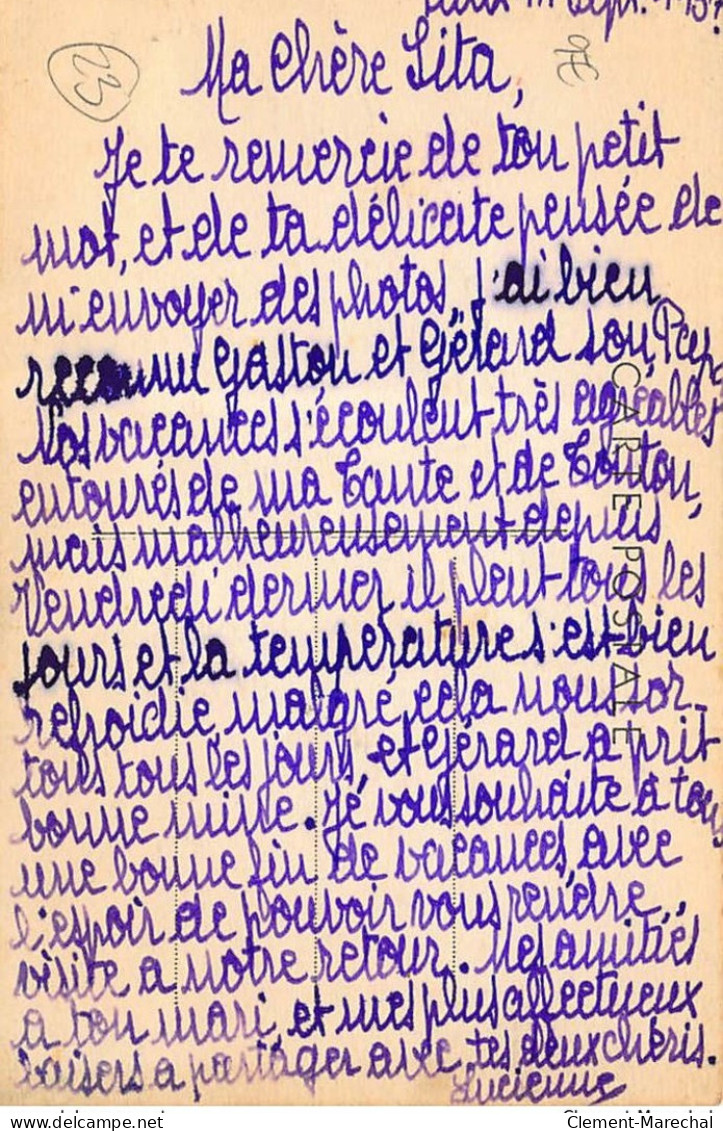 Sept.
23
Ma Chère Lita,
Je te remercie de ton petit
mot, et de ta délicate pensée de
m'envoyer des photos, j'ai bien
reconnu Gaston et Gérard son Papa
Nos vacances s'écoulent très agréables
entourés de ma Tante et de Tonton,
mais malheureusement depuis
Vendredi dernier il pleut tous les
jours et la température s'est bien
refroidie, malgré cela nous sor-
tons tous les jours, et Gérard a prit
bonne mine. Je vous souhaite à tous
une bonne fin de vacances, avec
l'espoir de pouvoir vous rendre
visite à notre retour. Mes amitiés
à ton mari, et mes plus affectueux
baisers a partager avec tes deux chéris.
Lucienne
CARTE POSTALE
Clement-Marechal